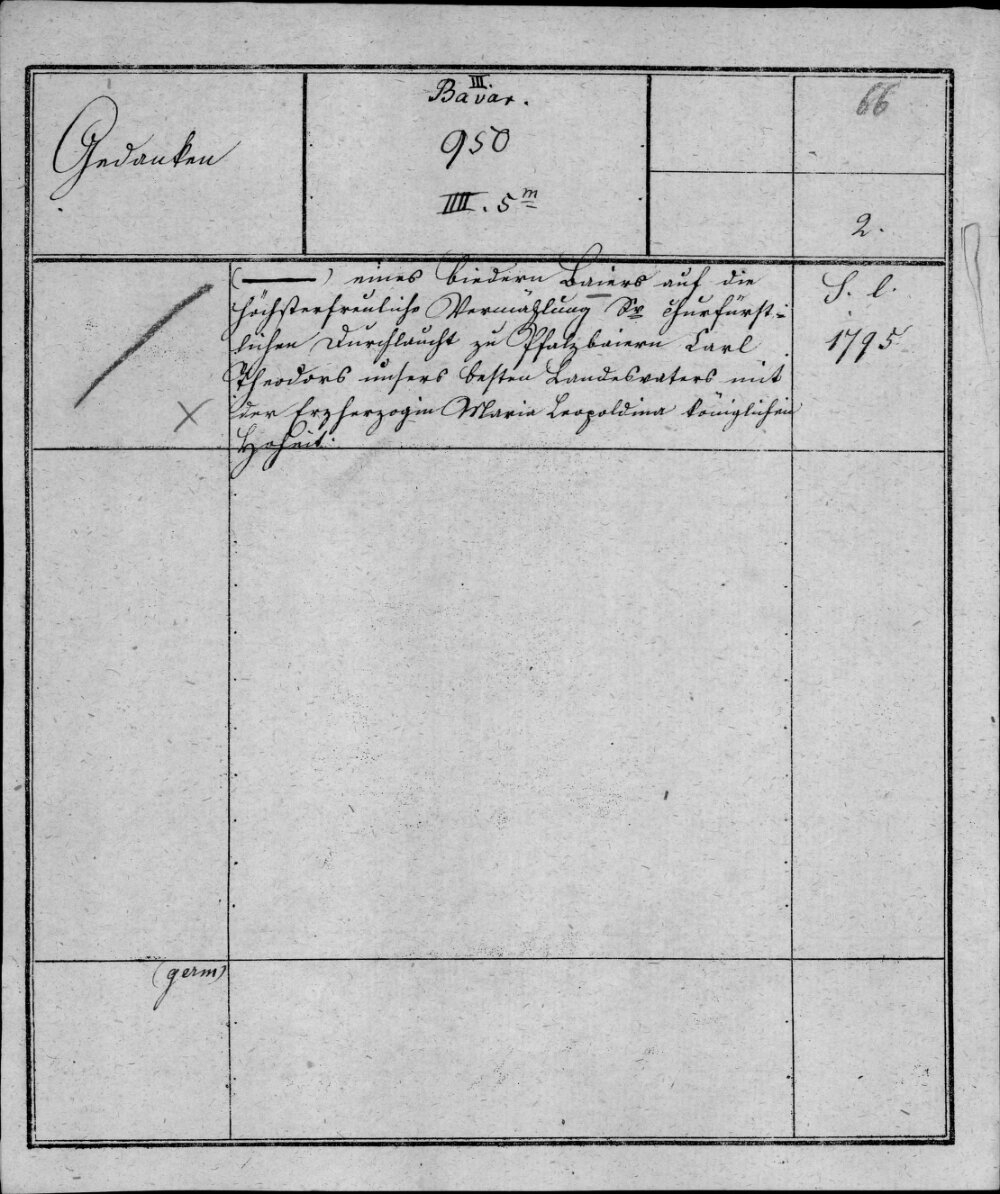 Gedanken
III.
Bavar.
950
IIII. 5m
66
2.
(———) eines biedern Baiers auf die
höchsterfreuliche Vermählung Sr churfürst-
lichen Durchlaucht zu Pfalzbaiern Carl
Theodors unsers besten Landesvaters mit
der Erzherzogin Maria Leopoldina königlichen
Hoheit.
S. l.
1795
(germ)